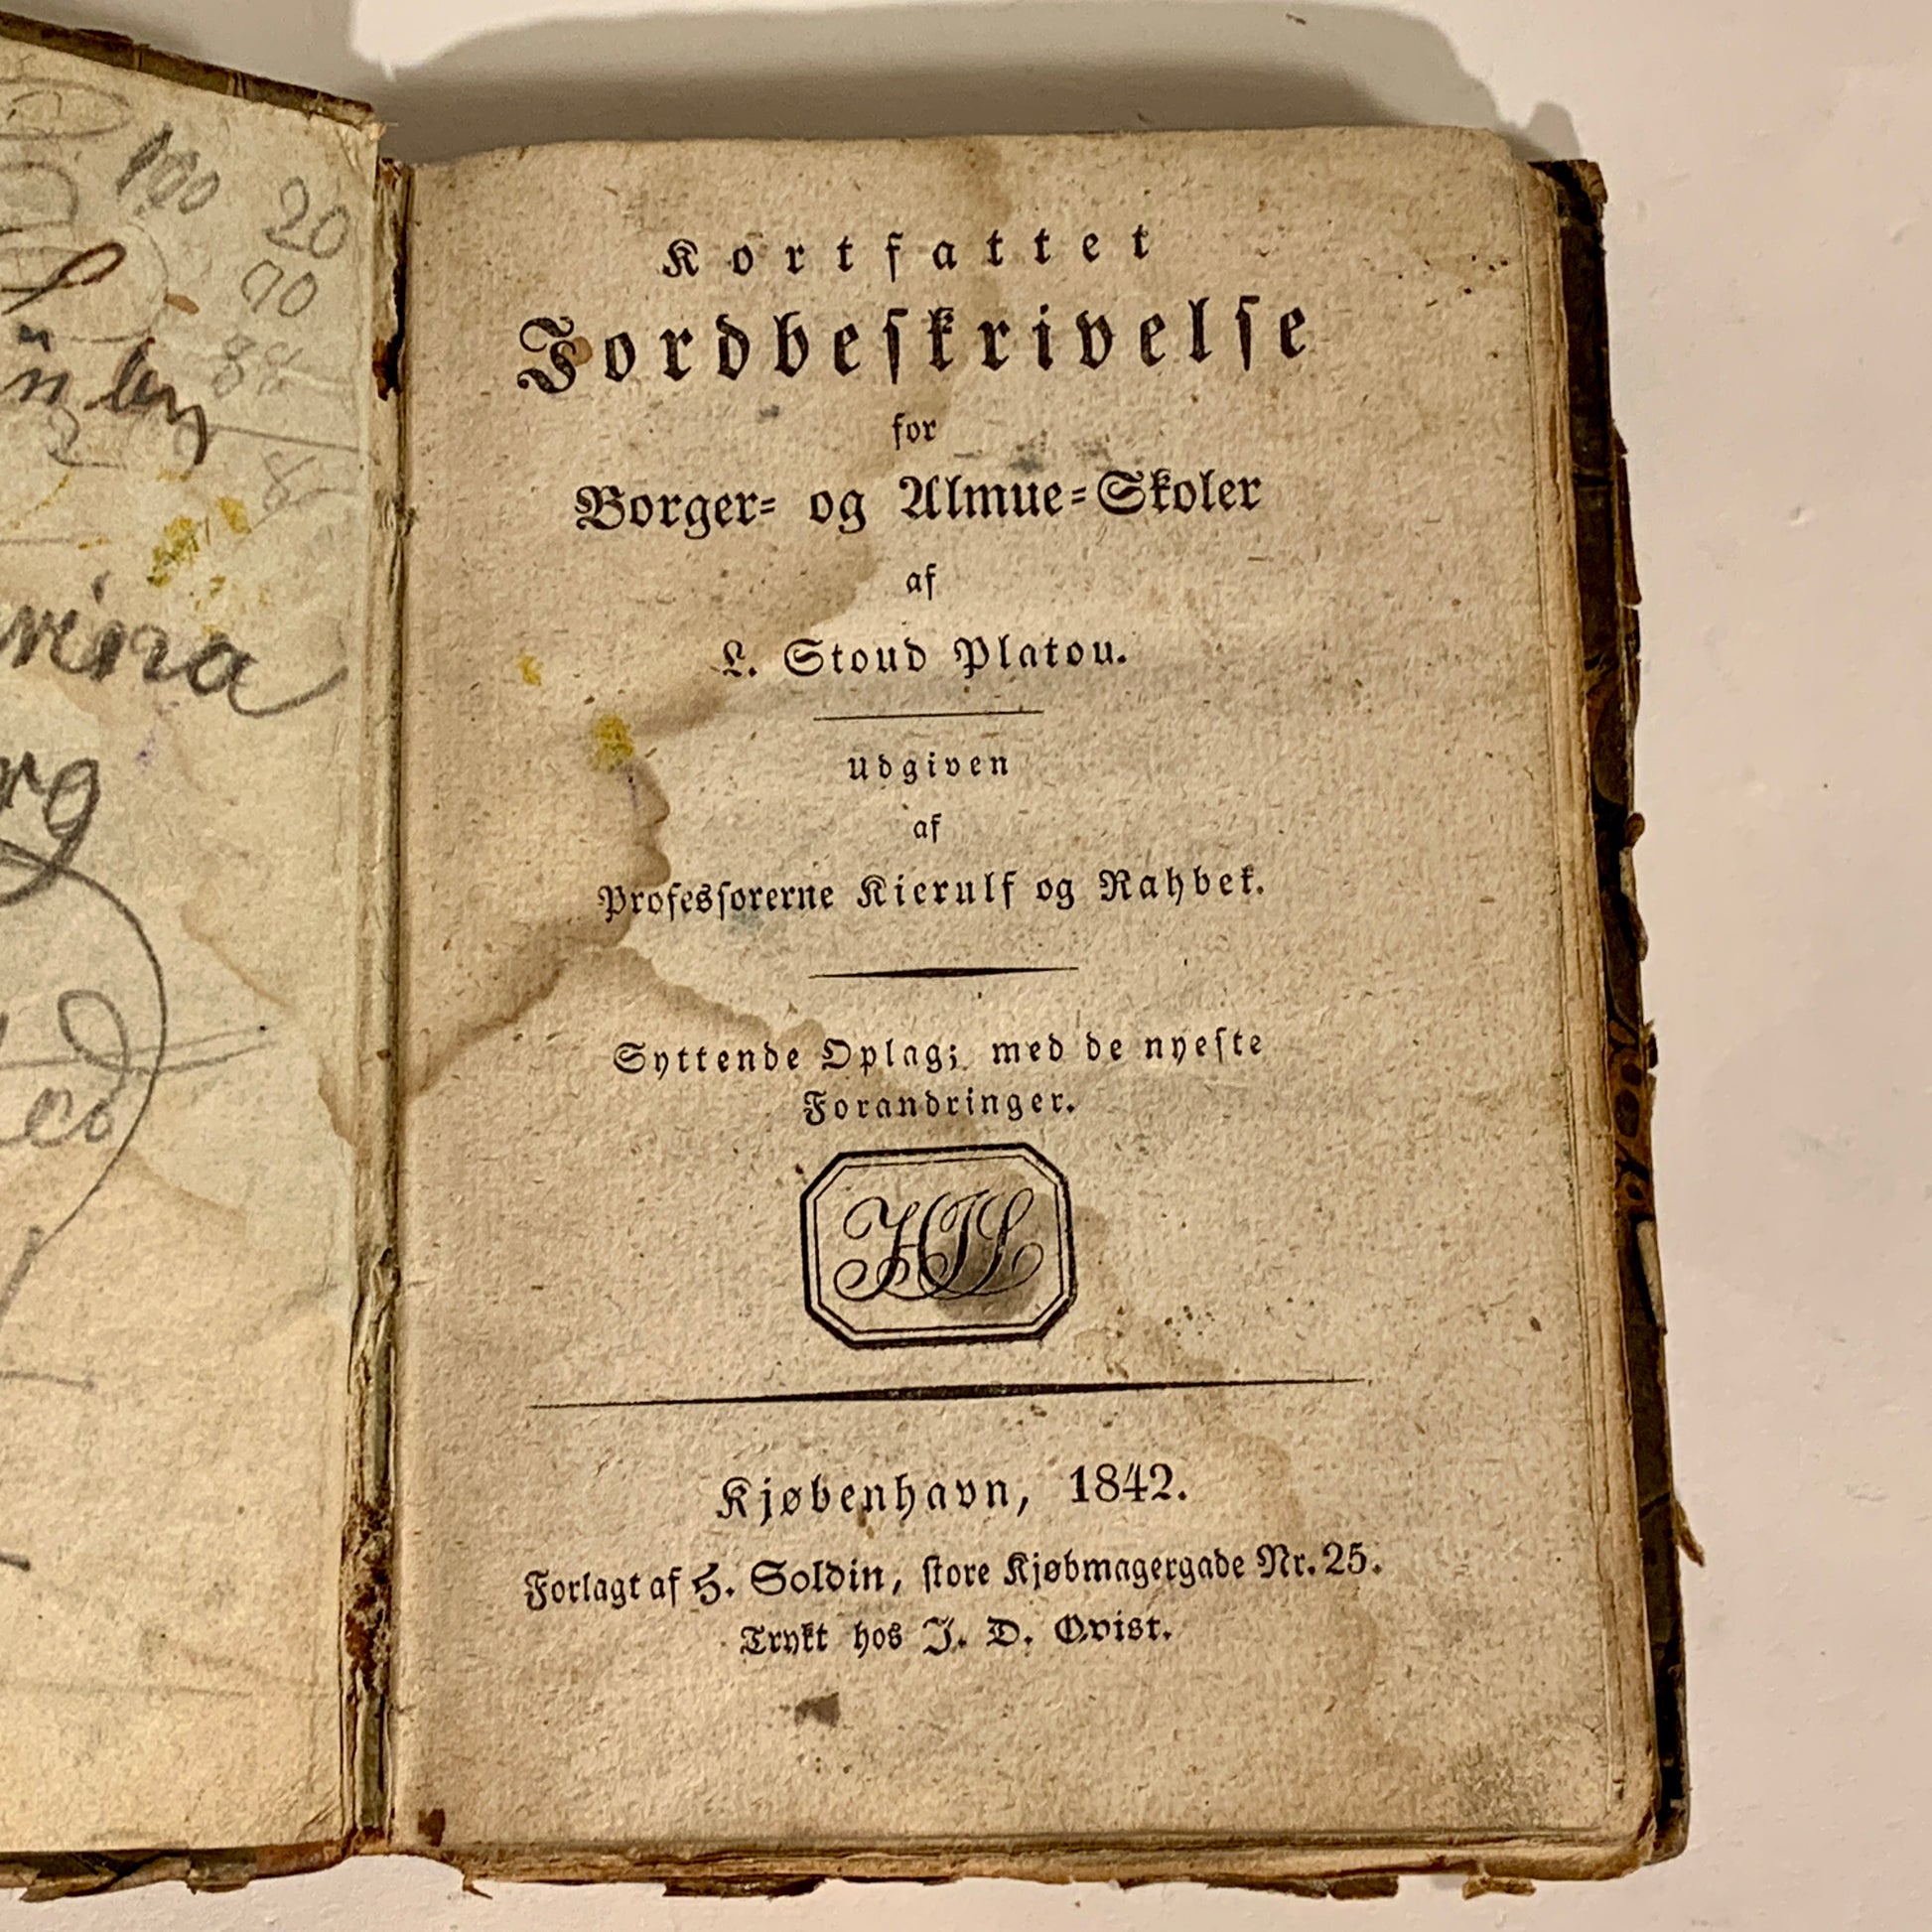 100
20
70
84
Kortfattet
Jordbeskrivelse
for
Borger= og Almue=Skoler
af
L. Stoud Platou.
Udgiven
af
Professorerne Kierulf og Rahbek.
Syttende Oplag; med de nyeste
Forandringer.
HIL
Kjøbenhavn, 1842.
Forlagt af H. Soldin, store Kjøbmagergade Nr. 25.
Trykt hos J. D. Qvist.